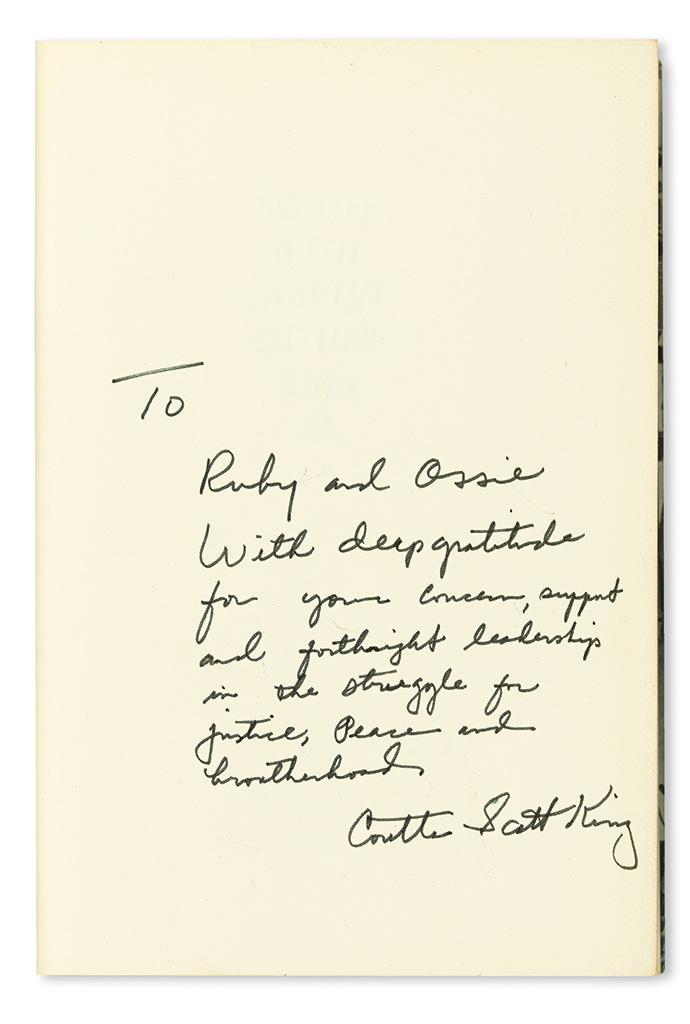 To
Ruby and Ossie
With deep gratitude
for your concern, support
and forthright leadership
in the struggle for
justice, Peace and
brotherhood
Coretta Scott King